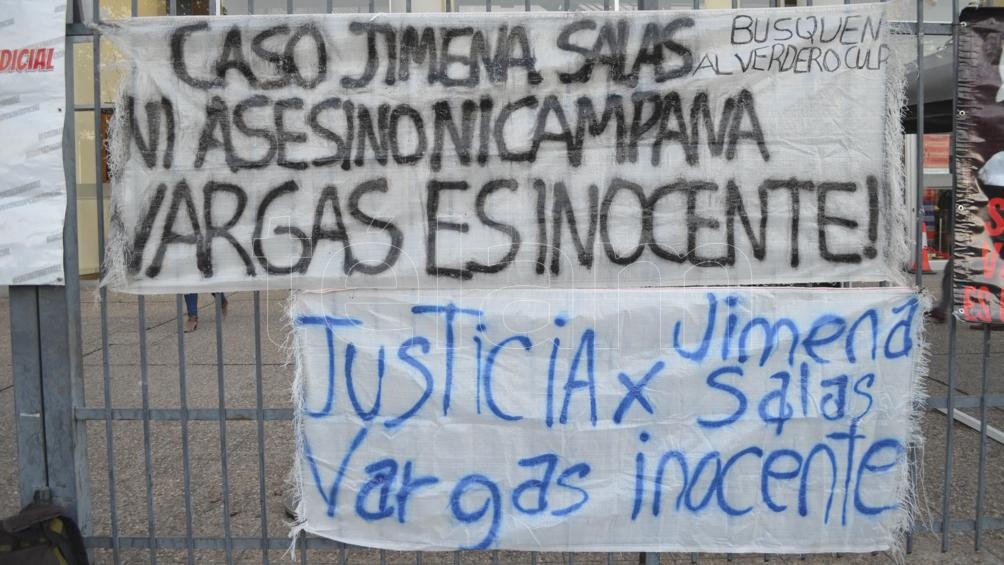 DICIAL
CASO JIMENA SALAS
BUSQUEN
AL VERDERO CULP
NI ASESINO NI CAMPANA
VARGAS ES INOCENTE!
JUSTICIA x Jimena
Salas
Vargas inocente